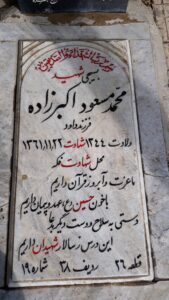 بسیجی شهید
محمد مسعود اکبرزاده
فرزند داود
ولادت ۱۳۴۴ شهادت ۱۳۶۱,۱۱,۲۲
محل شهادت فکه
ما عزت و آبرو ز قرآن داریم
با خون حسین (ع) عهد و پیمان داریم
دستی به سلاح و دست دیگر به دعا
این درس ز سالار شهیدان داریم
قطعه ۲۶ ردیف ۳۸ شماره ۱۹